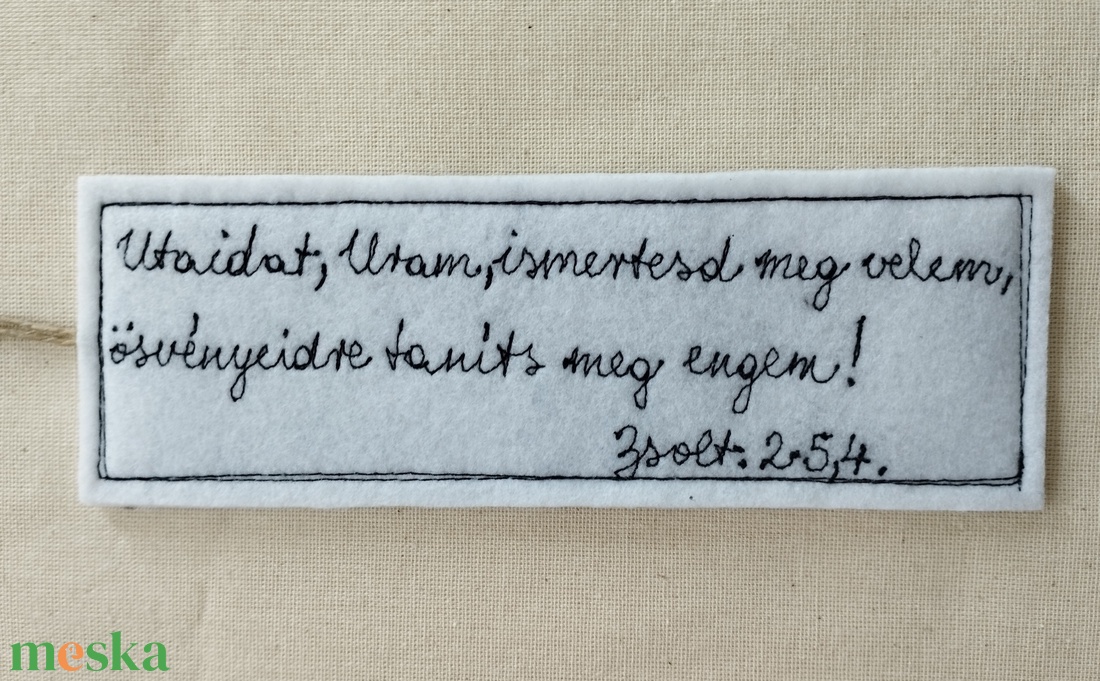 Utaidat, Uram, ismertesd meg velem,
ösvényeidre taníts meg engem!
Zsolt: 25,4.
meska